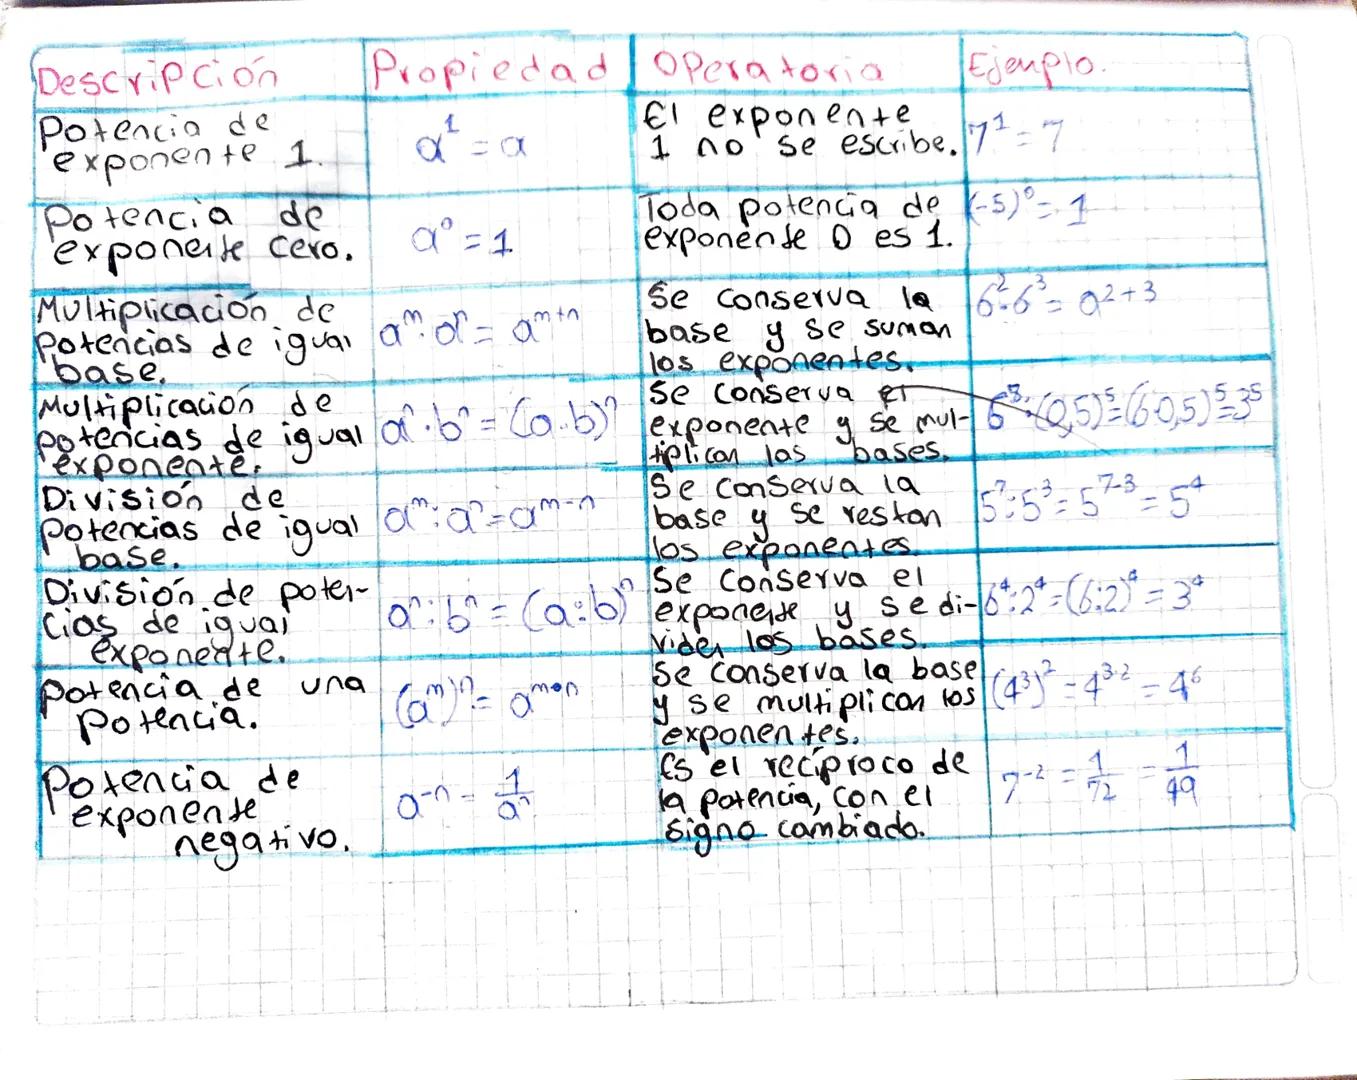 Descripción Propiedad Operatoria Ejemplo.
Potencia de
exponente 1.
a¹ = a
El exponente
1 no se escribe.
7¹ = 7
Potencia de
exponente cero.
a⁰ = 1
Toda potencia de
exponente 0 es 1.
(-5)⁰ = 1
Multiplicación de
potencias de igual
base.
aᵐ · aⁿ = aᵐ⁺ⁿ
Se conserva la
base y se suman
los exponentes.
6² · 6³ = a²⁺³
Multiplicación de
potencias de igual
exponente.
aⁿ · bⁿ = (a·b)ⁿ
Se conserva el
exponente y se mul-
tiplican las bases.
· (0,5)⁵ = (6·0,5)⁵ = 3⁵
División de
potencias de igual
base.
aᵐ : aⁿ = aᵐ⁻ⁿ
Se conserva la
base y se restan
los exponentes.
5⁷ : 5³ = 5⁷⁻³ = 5⁴
División de poten-
cias de igual
exponente.
aⁿ : bⁿ = (a:b)ⁿ
Se conserva el
exponente y se di-
viden las bases.
6⁴ : 2⁴ = (6:2)⁴ = 3⁴
Potencia de una
potencia.
(aᵐ)ⁿ = aᵐ·ⁿ
Se conserva la base
y se multiplican los
exponentes.
(4³)² = 4³·² = 4⁶
Potencia de
exponente
negativo.
a⁻ⁿ = 1/aⁿ
Es el recíproco de
la potencia, con el
signo cambiado.
7⁻² = 1/72 = 1/49